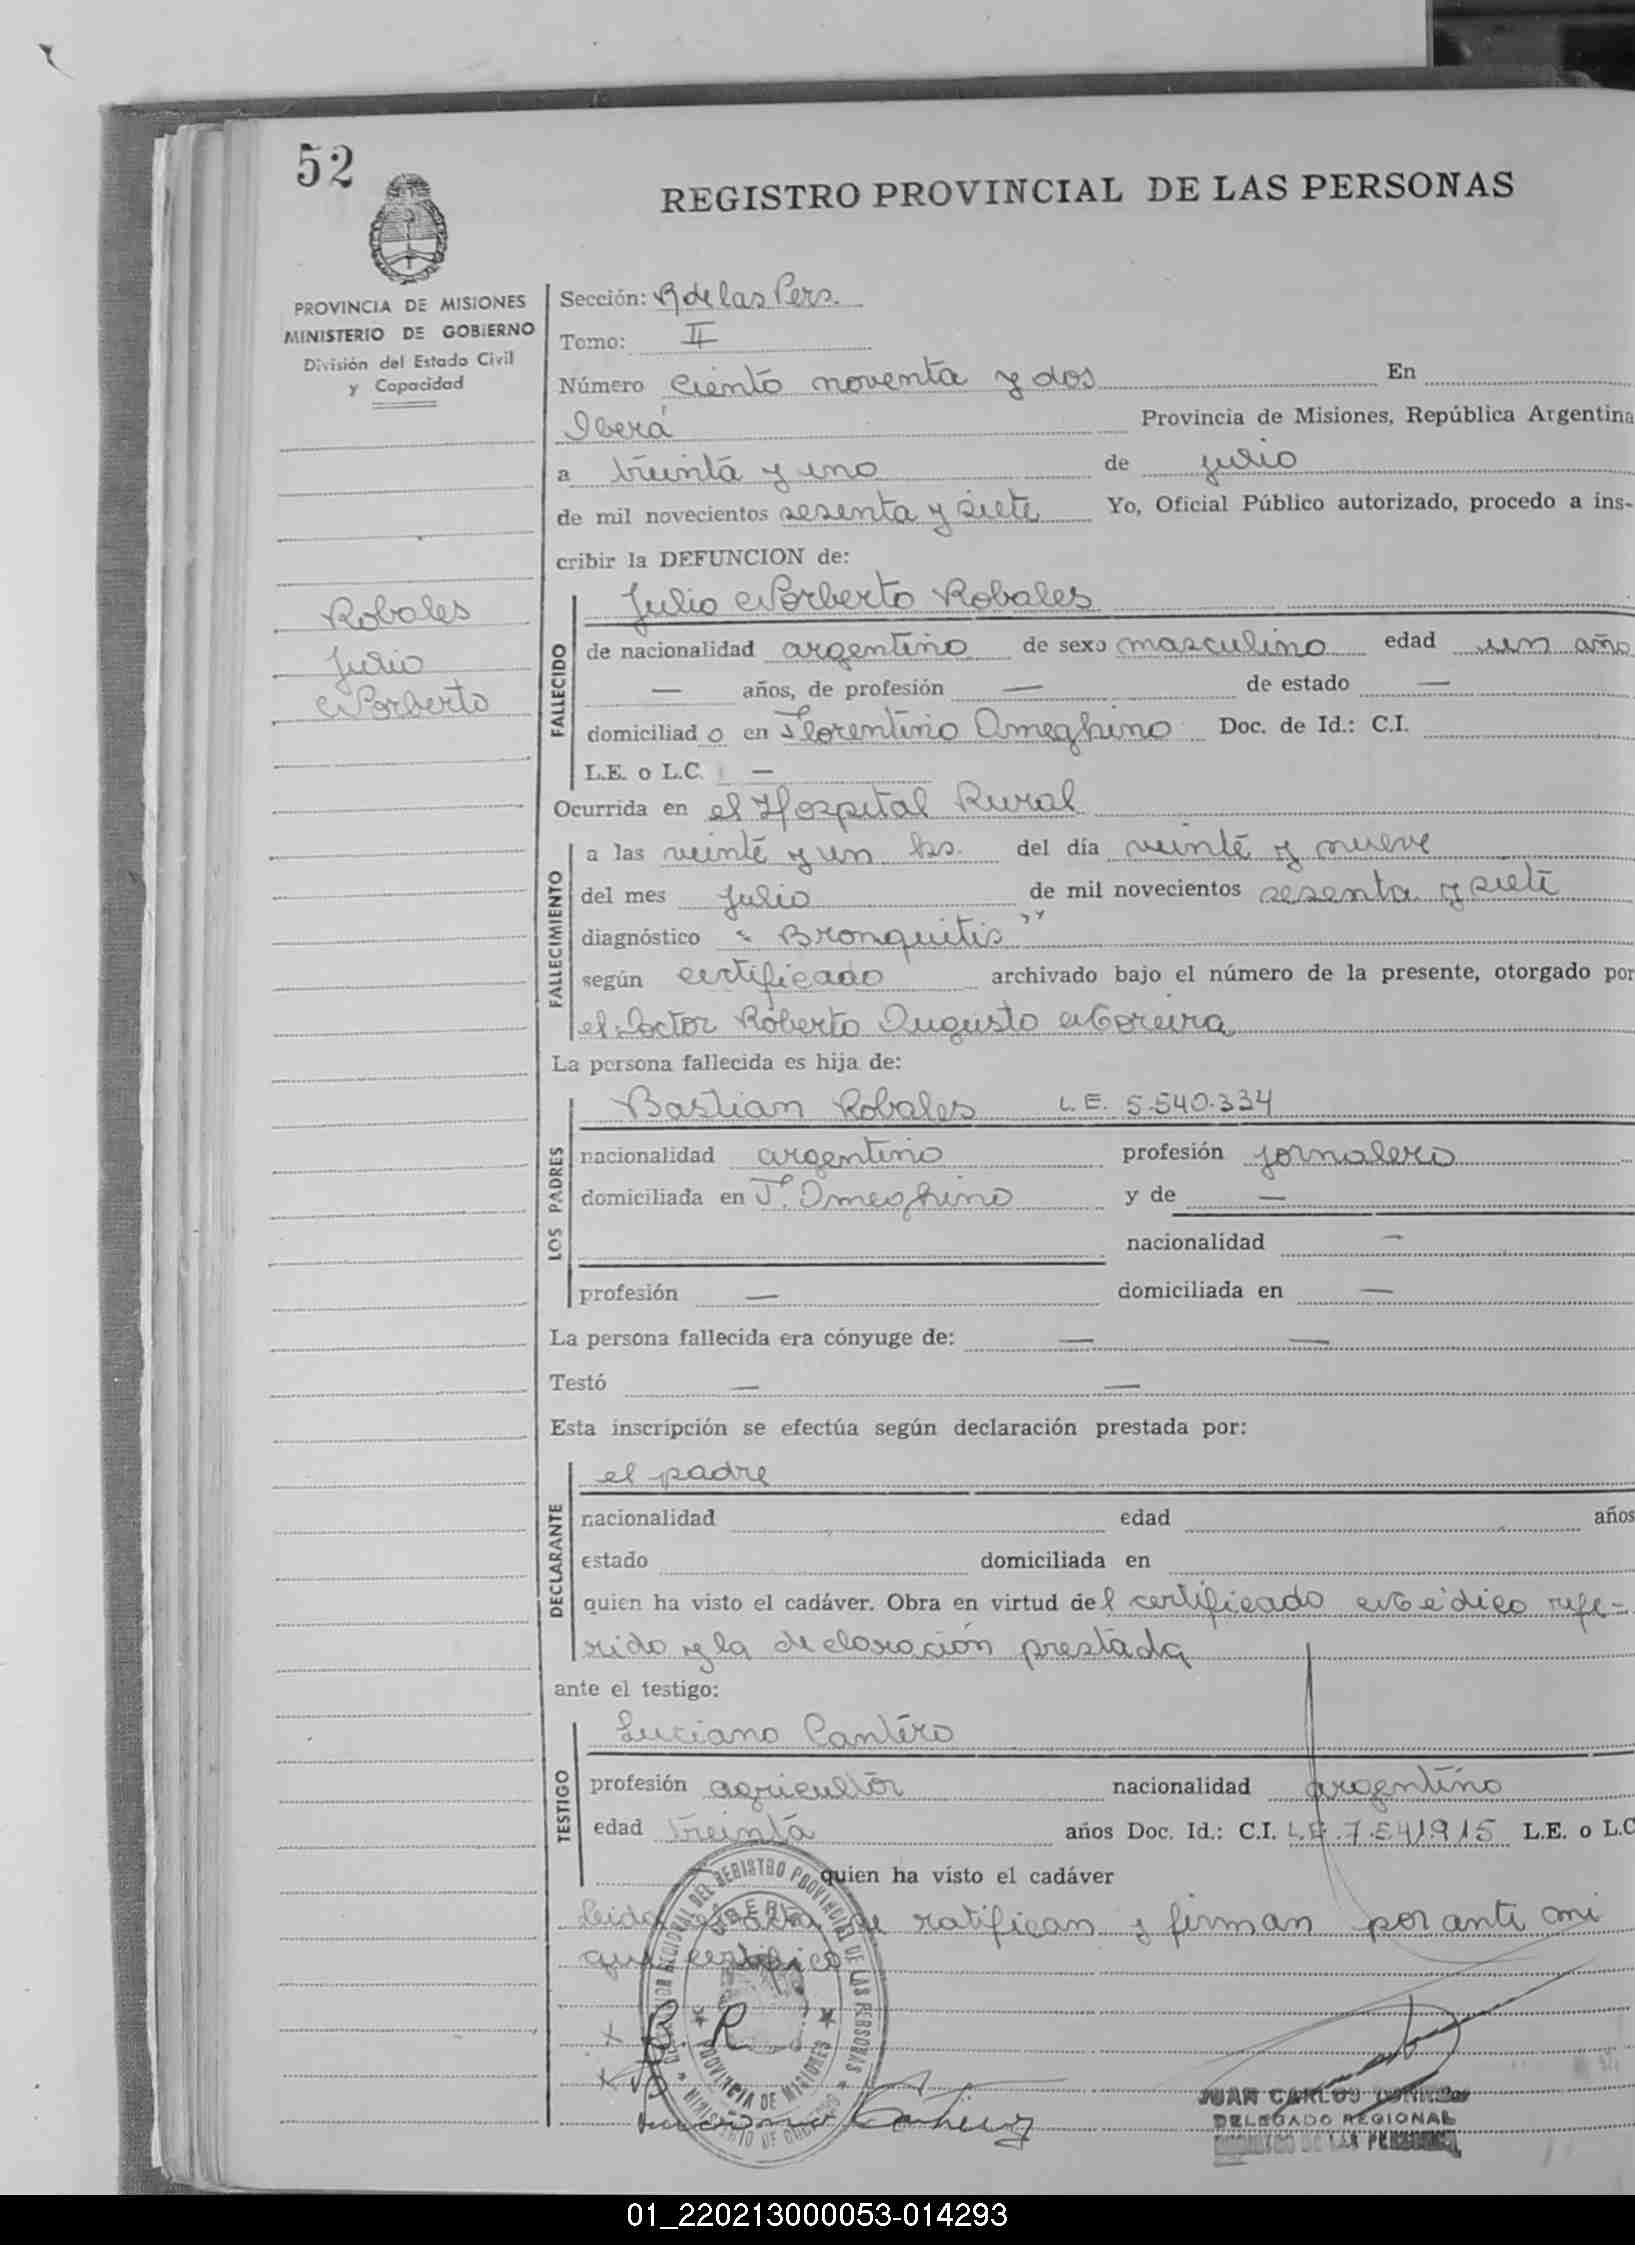 52
REGISTRO PROVINCIAL DE LAS PERSONAS
PROVINCIA DE MISIONES
MINISTERIO DE GOBIERNO
División del Estado Civil
y Capacidad
Sección: R de las Pers.
Tomo: II
Número ciento noventa y dos En
Oberá Provincia de Misiones, República Argentina
a treinta y uno de julio
de mil novecientos sesenta y siete Yo, Oficial Público autorizado, procedo a ins-
cribir la DEFUNCION de:
Robales
Julio
Norberto
FALLECIDO
Julio Norberto Robales
de nacionalidad argentino de sexo masculino edad un año
— años, de profesión — de estado —
domiciliado en Florentino Ameghino Doc. de Id.: C.I.
L.E. o L.C. —
Ocurrida en el Hospital Rural
FALLECIMIENTO
a las veinte y un hs. del día veinte y nueve
del mes Julio de mil novecientos sesenta y siete
diagnóstico " Bronquitis "
según certificado archivado bajo el número de la presente, otorgado por
el Doctor Roberto Augusto Moreira
La persona fallecida es hija de:
LOS PADRES
Bastian Robales L.E. 5.540.334
nacionalidad argentino profesión jornalero
domiciliada en F. Ameghino y de —
nacionalidad —
profesión — domiciliada en —
La persona fallecida era cónyuge de: — —
Testó — —
Esta inscripción se efectúa según declaración prestada por:
DECLARANTE
el padre
nacionalidad edad años
estado domiciliada en
quien ha visto el cadáver. Obra en virtud del certificado Médico refe-
rido y la declaración prestada
ante el testigo:
TESTIGO
Luciano Cantero
profesión agricultor nacionalidad argentino
edad Treinta años Doc. Id.: C.I. L.E. 7.541915 L.E. o L.C
quien ha visto el cadáver
Leida se ratifican y firman por ante mi
que certifico
REGIONAL DEL REGISTRO PROVINCIAL DE LAS PERSONAS
PROVINCIA DE MISIONES
MINISTERIO DE GOBIERNO
Luciano Cantero
JUAN CARLOS
DELEGADO REGIONAL
DE LAS PERSONAS
01_220213000053-014293